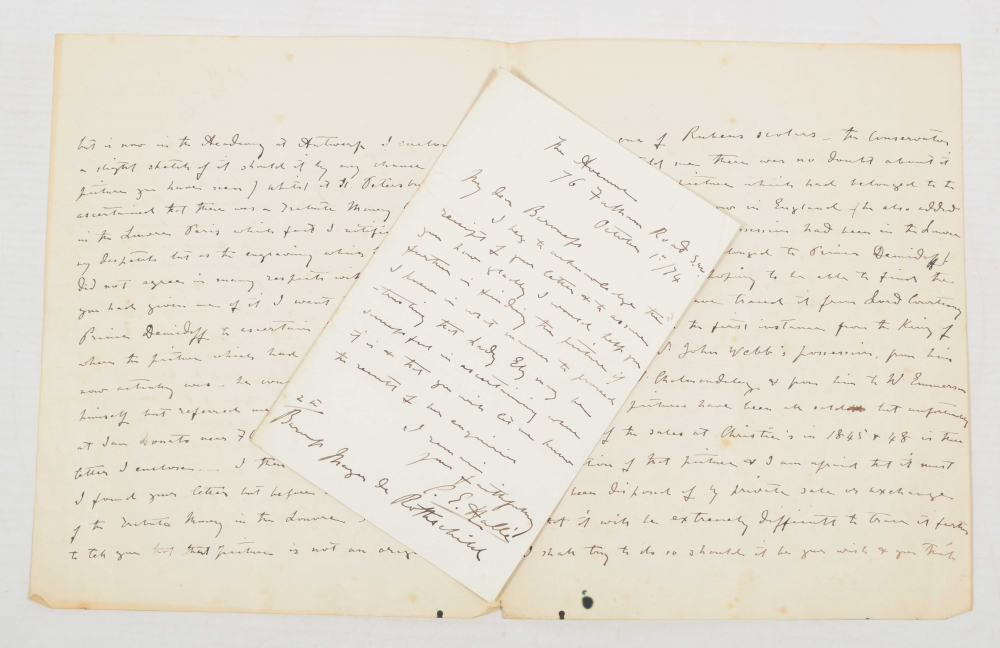 but is now in the Academy at Antwerp I enclose
a slight sketch of it should it by any chance
picture you have seen / whilst at St Petersbu
ascertained that there was a Tribute Money
in the Louvre Paris which fact I
my dispatch but as the engraving which
did not agree in many respects with
you had given me of it I went
Prince Demidoff to ascertain
where the picture which had
now actually was - he
himself but referred me
at San Donato near
letter I enclose I
I found your letter but before
of the Tribute Money in the Louvre
to tell you that that picture is not an
The Avenue
76 Fulham Road S.W
October 1st/74
My dear Baroness
I beg to acknowledge the
receipt of your letter & to assure
you how gladly I would help you
further in finding the picture if
I knew in what manner to proceed
trusting that Lady Ely may be
successful in ascertaining where
it is & that you will let me know
the result of her enquiries
I remain
Yours faithfully
E. Hallé
Baroness Mayer de Rothschild
one of Rubens scolars - the Conservator
told me there was no doubt about it
picture which had belonged to the
now in England (he also added
possession had been in the Louvre
belonged to Prince Demidoff)
hoping to be able to find the
have traced it from Lord Courtenay
the first instance from the King of
John Webb's possession, from him
Cholmondeley & from him to W Emmerson
pictures have been all sold but unfortunately
of the sales at Christie's in 1845 & 48 is there
of that picture & I am afraid that it must
been disposed of by private sale or exchange
it will be extremely difficult to trace it further
I shall try to do so should it be your wish & you think